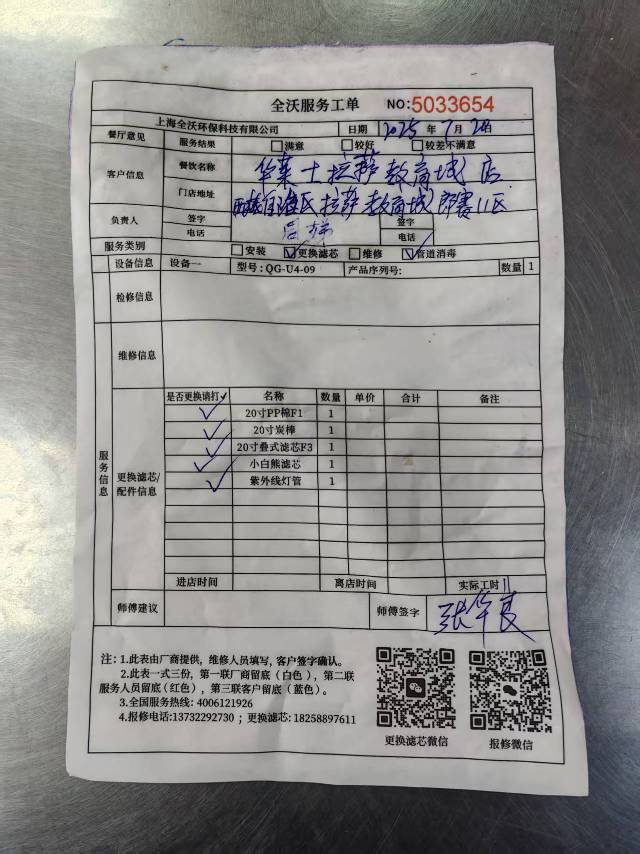 全沃服务工单 NO:5033654
上海全沃环保科技有限公司 日期 2025 年 7 月 20日
餐厅意见 服务结果 满意 较好 较差不满意
客户信息 餐饮名称 华莱士拉萨教育城店
门店地址 西藏自治区拉萨教育城 11区
负责人 签字 签字
电话 电话
服务类别 安装 ✓更换滤芯 维修 ✓管道消毒
设备信息 设备一 型号:QG-U4-09 产品序列号: 数量 1
检修信息
服务信息
维修信息
更换滤芯/配件信息
是否更换请打✓ 名称 数量 单价 合计 备注
✓ 20寸PP棉F1 1
✓ 20寸炭棒 1
✓ 20寸叠式滤芯F3 1
✓ 小白熊滤芯 1
✓ 紫外线灯管 1
进店时间 离店时间 实际工时
师傅建议 师傅签字 张华良
注: 1.此表由厂商提供，维修人员填写，客户签字确认。
2.此表一式三份，第一联厂商留底（白色），第二联
服务人员留底(红色），第三联客户留底（蓝色）。
3.全国服务热线: 4006121926
4.报修电话:13732292730 ；更换滤芯: 18258897611
更换滤芯微信 报修微信